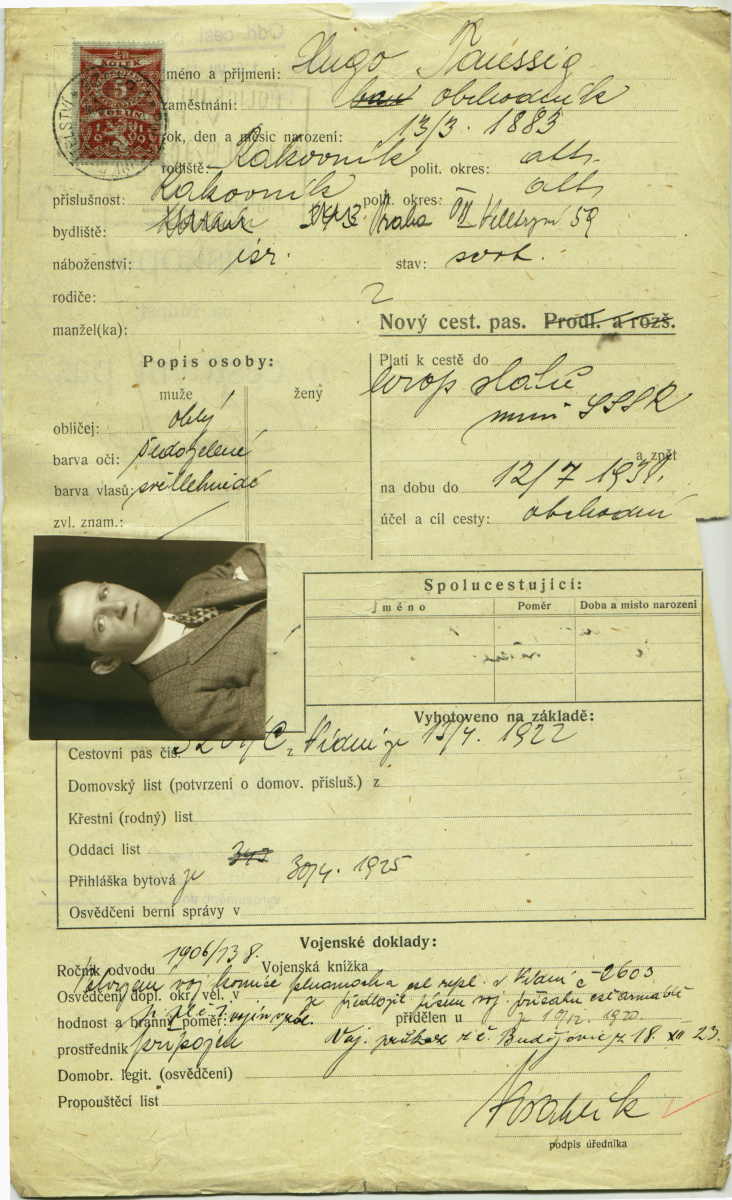 KOLEK
5
KORUN
TELSTVÍ
jméno a příjmení: Hugo Taussig
zaměstnání: obchodník
rok, den a měsíc narození: 13/3. 1883
rodiště: Rakovník polit. okres: otto
příslušnost: Rakovník polit. okres: otto
bydliště: Praha VII Veletržní 59
náboženství: isr. stav: svob.
rodiče: ?
manžel(ka):
Nový cest. pas. Prodl. a rozš.
Popis osoby:
muže ženy
obličej: oblý
barva očí: šedozelené
barva vlasů: světlehnědé
zvl. znam.:
Platí k cestě do
evrop států
mimo SSSR
a zpět
na dobu do 12/7 193
účel a cíl cesty: obchodní
Spolucestující:
Jméno Poměr Doba a místo narození
Vyhotoveno na základě:
Cestovní pas čís. Vídni 15/4. 1922
Domovský list (potvrzení o domov. přísluš.) z
Křestní (rodný) list
Oddací list
Přihláška bytová je 30/4. 1925
Osvědčení berní správy v
Vojenské doklady:
Ročník odvodu 1906/13 Vojenská kniížka
Osvědčení dopl. okr. vel. v
hodnost a branný poměr: přidělen u
prostředník připojen Voj. průkaz z Č. Budějovic z 18. XII 23.
Domobr. legit. (osvědčení)
Propouštěcí list
podpis úředníka